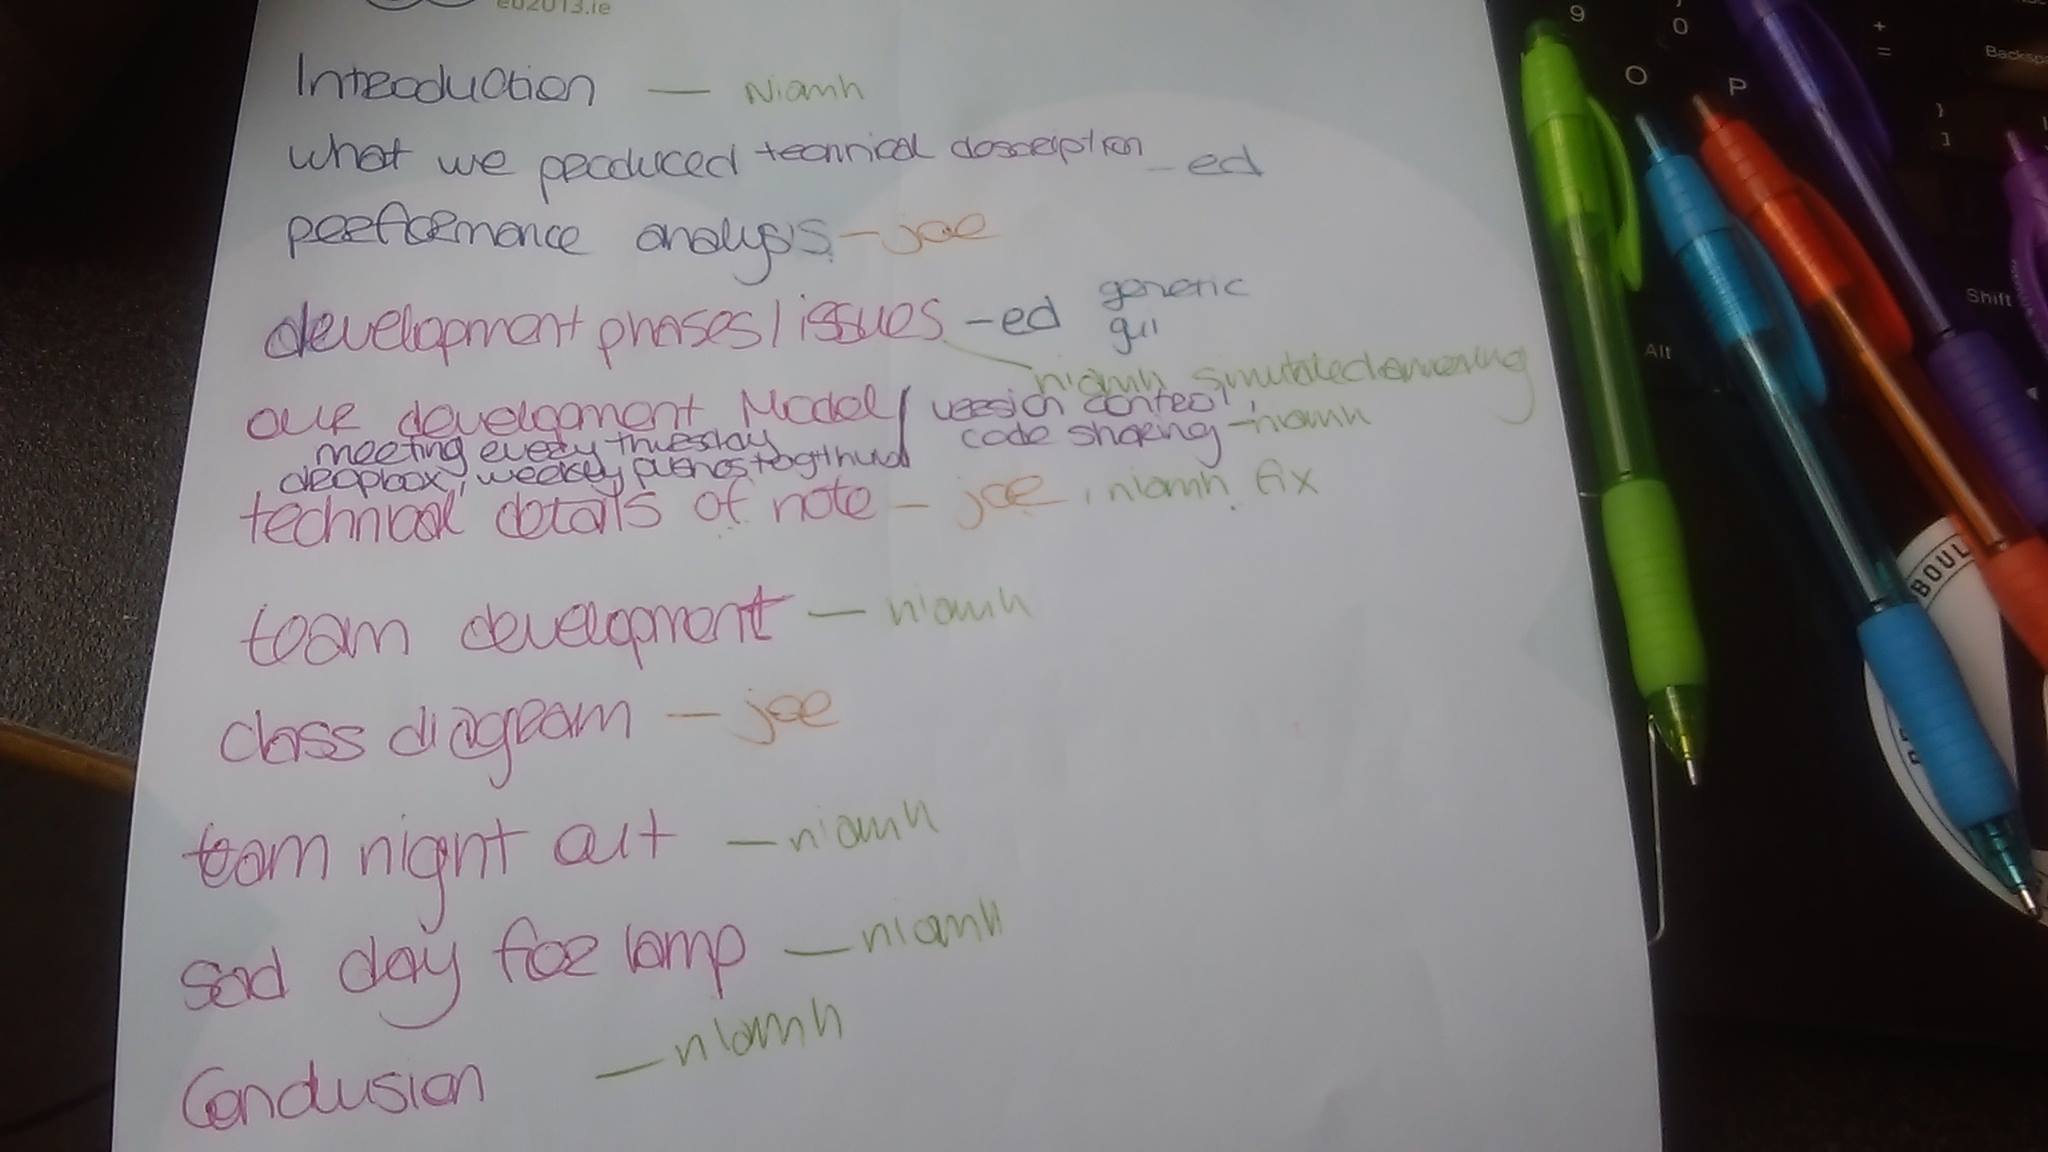 eu2013.ie
Introduction — Niamh
what we produced technical description - ed
performance analysis - joe
development phases / issues - ed generic
gui
niamh simulated annealing
our development Model / version control,
meeting every thursday code sharing - niamh
dropbox, weekly pushes to github
technical details of note - joe, niamh fix
team development — niamh
class diagram — joe
team night out — niamh
sad day for lamp — niamh
Conclusion — niamh
9
0
O
P
+
=
Backspa
}
]
Shift
Alt
BOUL